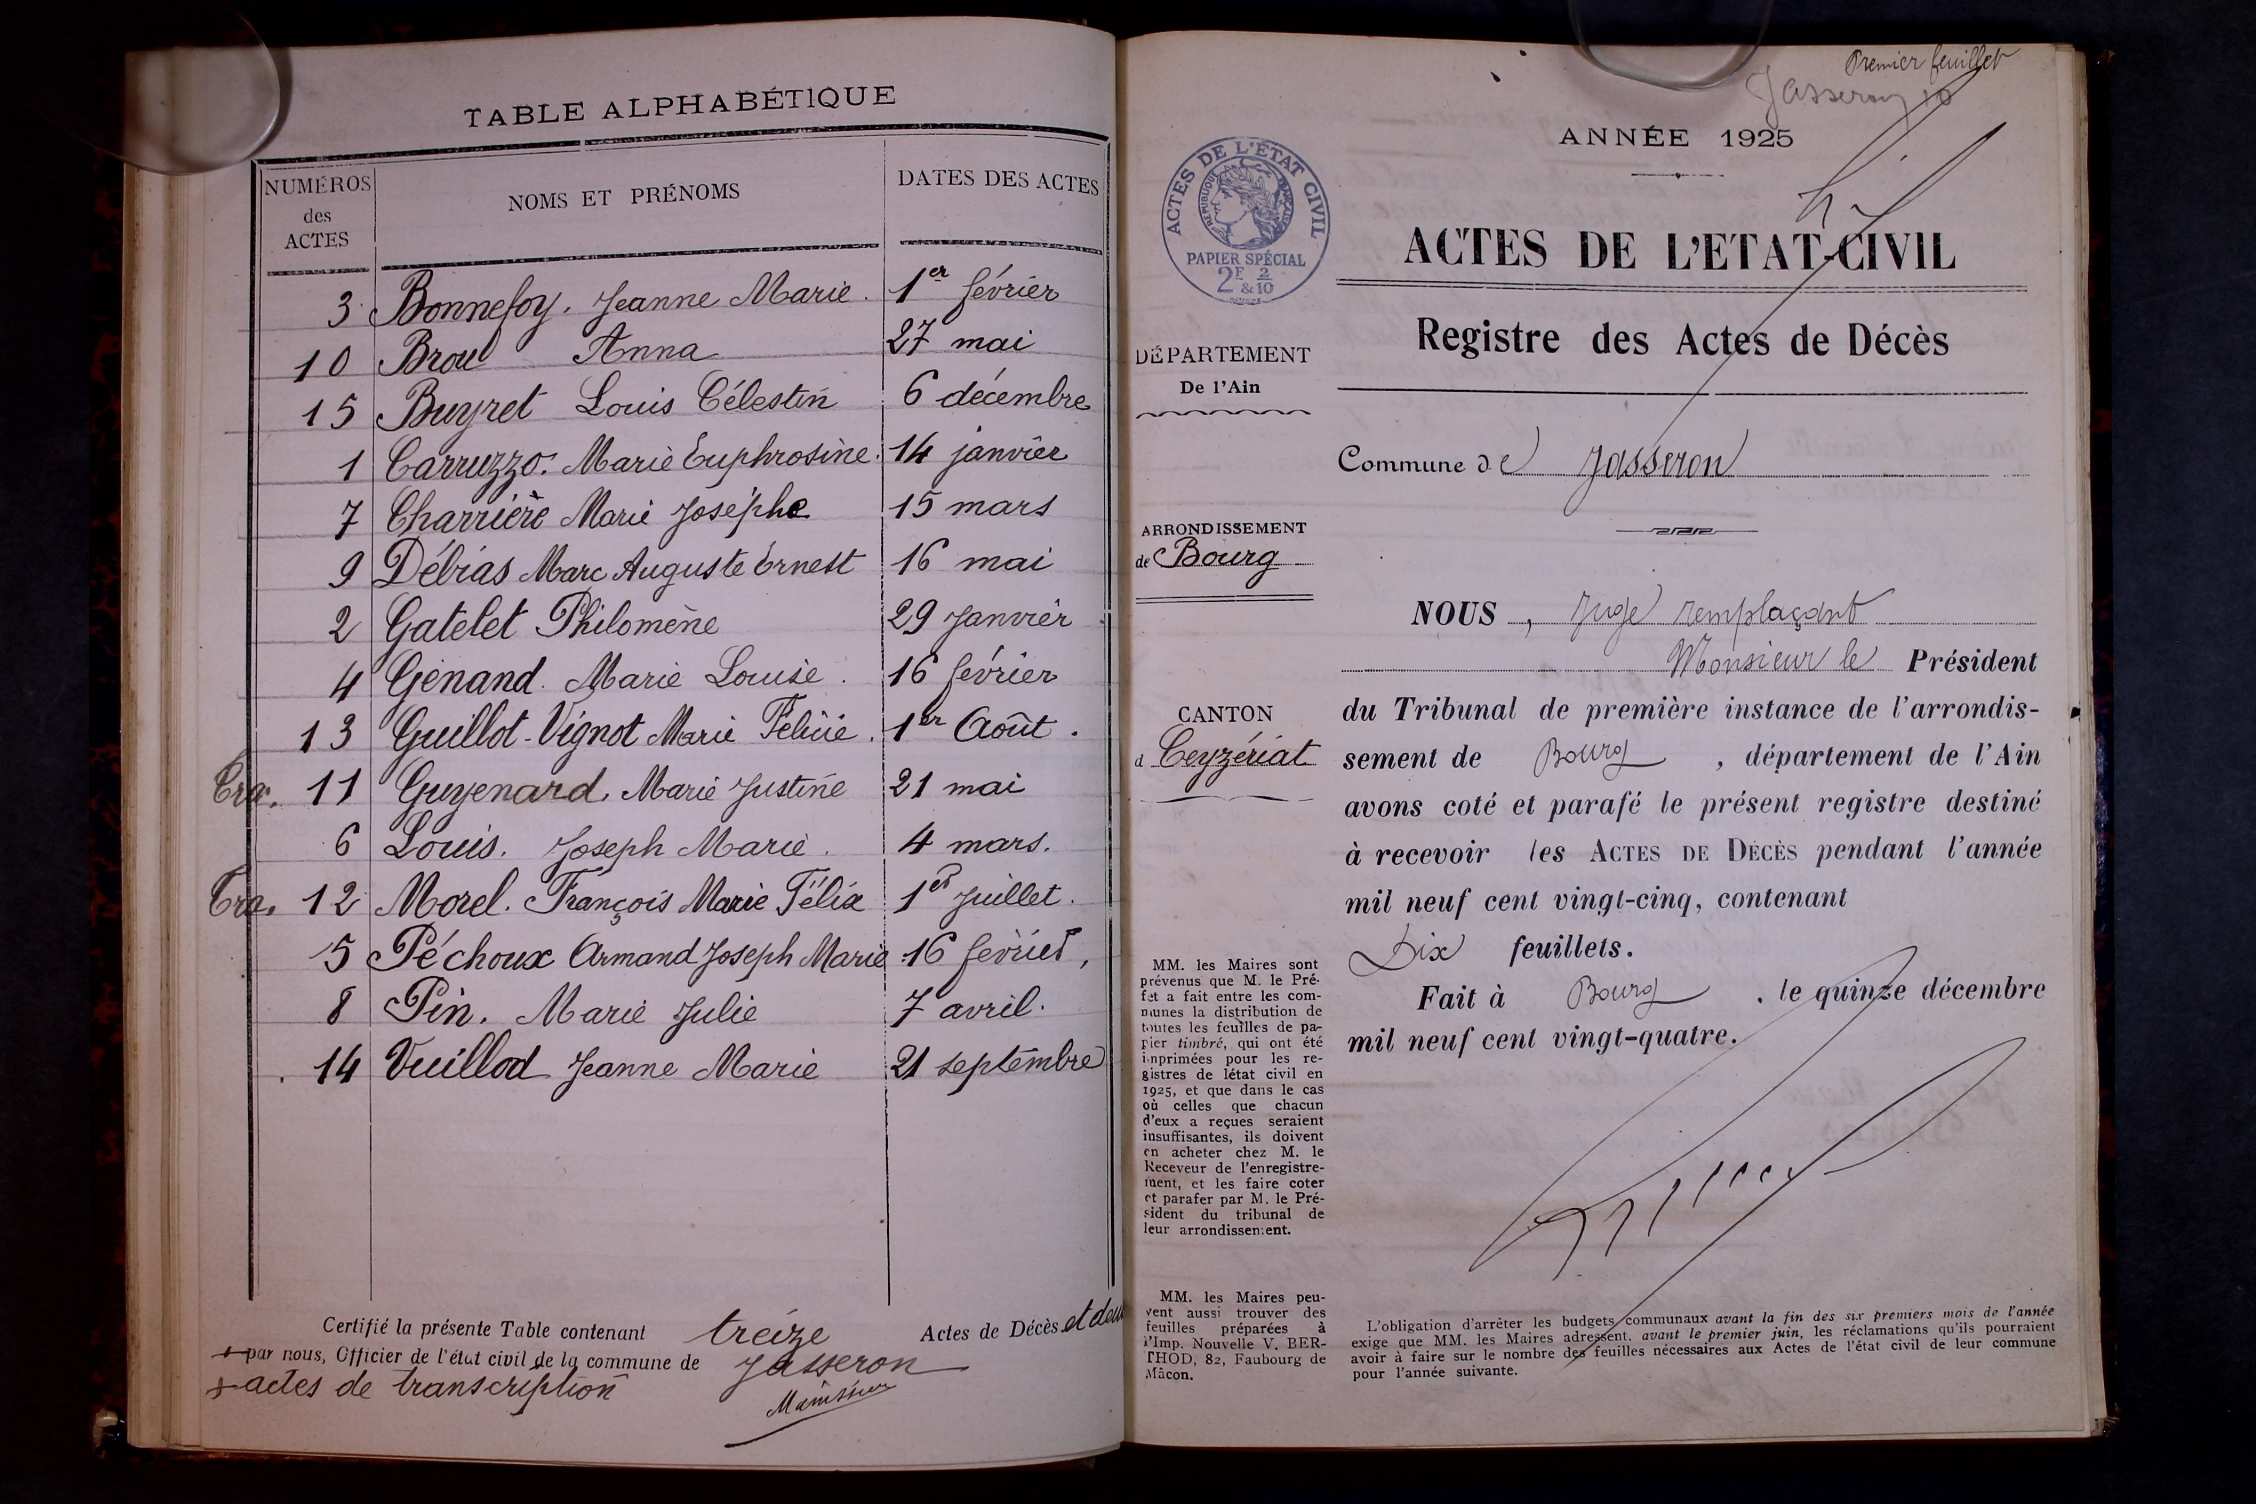 TABLE ALPHABÉTIQUE
NUMÉROS des ACTES
NOMS ET PRÉNOMS
DATES DES ACTES
3 Bonnefoy. Jeanne Marie. 1er février
10 Broud Anna 27 mai
15 Buyret Louis Célestin 6 décembre
1 Carruzzo. Marie Euphrosine. 14 janvier
7 Charrière Marie Josephe 15 mars
9 Débias Marc Auguste Ernest 16 mai
2 Gatelet Philomène 29 Janvier
4 Genand. Marie Louise. 16 février
13 Guillot-Vignot Marie Félicie. 1er Août.
Tra. 11 Guyenard. Marie Justine 21 mai
6 Louis. Joseph Marie. 4 mars.
Tra. 12 Morel. François Marie Félix 1er Juillet.
5 Péchoux Armand Joseph Marie 16 février,
8 Pin. Marie Julie 7 avril.
14 Vuillod Jeanne Marie 21 septembre
Certifié la présente Table contenant treize Actes de Décès et deux
par nous, Officier de l'état civil de la commune de Jasseron
actes de transcription
Premier feuillet
Jasseron 10
ANNÉE 1925
ACTES DE L'ÉTAT CIVIL
RÉPUBLIQUE FRANÇAISE
PAPIER SPÉCIAL
2F & 2/10
ACTES DE L'ETAT-CIVIL
Registre des Actes de Décès
DÉPARTEMENT
De l'Ain
Commune de Jasseron
ARRONDISSEMENT
de Bourg
CANTON
d Ceyzériat
NOUS, Juge remplaçant
Monsieur le Président
du Tribunal de première instance de l'arrondis-
sement de Bourg, département de l'Ain
avons coté et parafé le présent registre destiné
à recevoir les ACTES DE DÉCÈS pendant l'année
mil neuf cent vingt-cinq, contenant
Dix feuillets.
Fait à Bourg, le quinze décembre
mil neuf cent vingt-quatre.
MM. les Maires sont
prévenus que M. le Pré-
fet a fait entre les com-
munes la distribution de
toutes les feuilles de pa-
pier timbré, qui ont été
imprimées pour les re-
gistres de létat civil en
1925, et que dans le cas
où celles que chacun
d'eux a reçues seraient
insuffisantes, ils doivent
en acheter chez M. le
Receveur de l'enregistre-
ment, et les faire coter
et parafer par M. le Pré-
sident du tribunal de
leur arrondissement.
MM. les Maires peu-
vent aussi trouver des
feuilles préparées à
l'Imp. Nouvelle V. BER-
THOD, 82, Faubourg de
Mâcon.
L'obligation d'arrêter les budgets communaux avant la fin des six premiers mois de l'année
exige que MM. les Maires adressent, avant le premier juin, les réclamations qu'ils pourraient
avoir à faire sur le nombre des feuilles nécessaires aux Actes de l'état civil de leur commune
pour l'année suivante.